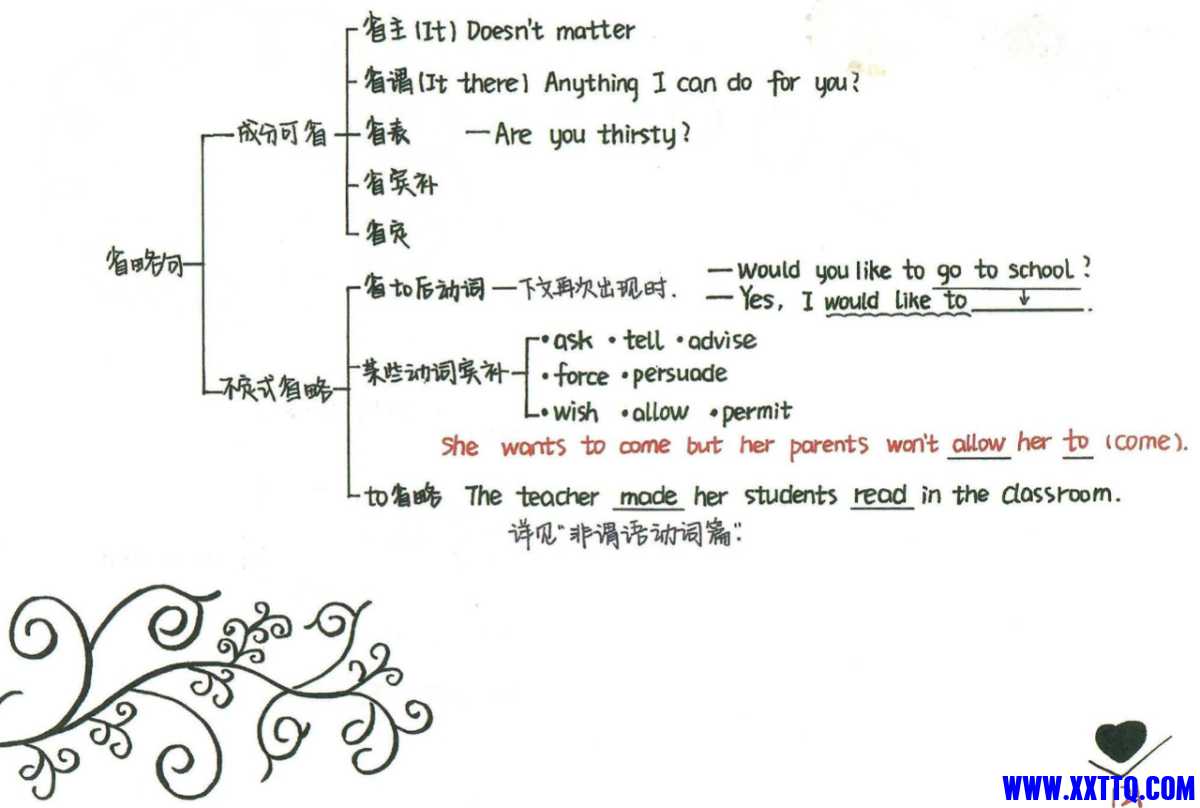 省主(It) Doesn't matter
省谓(It there) Anything I can do for you?
成分可省
省表 —Are you thirsty?
省宾补
省定
省略句
省to后动词 —下文再次出现时.
—Would you like to go to school?
—Yes, I would like to ______.
不定式省略
某些动词宾补
•ask •tell •advise
•force •persuade
•wish •allow •permit
She wants to come but her parents won't allow her to (come).
to省略 The teacher made her students read in the classroom.
详见"非谓语动词篇".
WWW.XXTTQ.COM